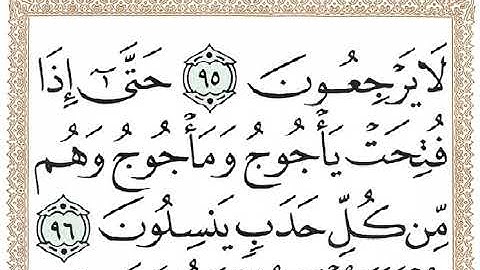 لَا يَرْجِعُونَ ٩٥ حَتَّىٰٓ إِذَا
فُتِحَتْ يَأْجُوجُ وَمَأْجُوجُ وَهُم
مِّن كُلِّ حَدَبٍ يَنسِلُونَ ٩٦